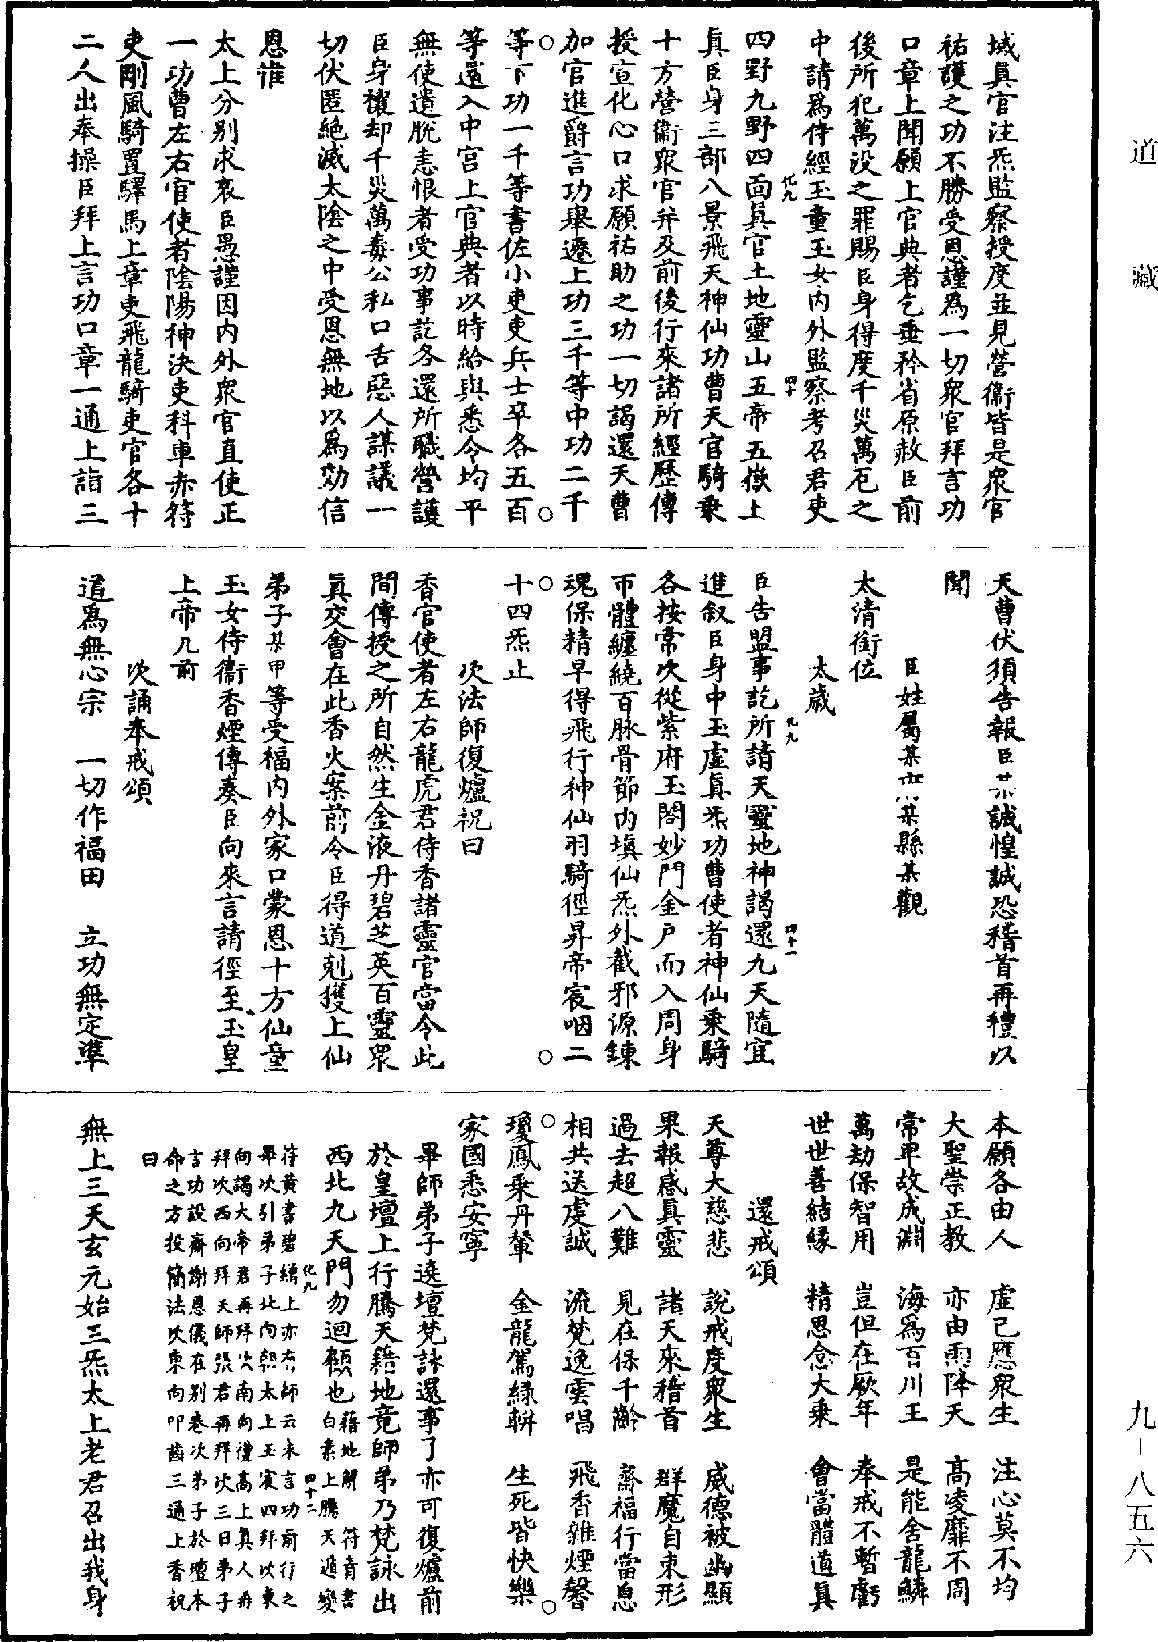 道藏
九－八五六
域真官注炁監察授度並見營衞皆是眾官
祐護之功不勝受恩謹為一切眾官拜言功
口章上聞願上官典者乞垂矜省原赦臣前
後所犯萬設之罪賜臣身得度千災萬厄之
中請為侍經玉童玉女內外監察考召君吏
四野九野四面真官土地靈山五帝五嶽上
真臣身三部八景飛天神仙功曹天官騎乗
十方營衞眾官并及前後行來諸所經歷傳
授宣化心口求願祐助之功一切謁還天曹
加官進爵言功舉遷上功三千等中功二千
等下功一千等書佐小吏吏兵士卒各五百
等還入中宮上官典者以時給與悉令均平
無使遺脫恚恨者受功事訖各還所職營護
臣身禳却千災萬毒公私口舌惡人謀議一
切伏匿絕滅太陰之中受恩無地以為効信
恩惟
太上分別求哀臣愚謹因內外眾官直使正
一功曹左右官使者陰陽神決吏科車赤符
吏剛風騎置驛馬上章吏飛龍騎吏官各十
二人出奉操臣拜上言功口章一通上詣三
天曹伏須告報臣某誠惶誠恐稽首再禮以
聞
臣姓屬某州某縣某觀
太清銜位
太歲
臣告盟事訖所請天靈地神謁還九天隨宜
進叙臣身中玉虛真炁功曹使者神仙乗騎
各按常次從紫府玉閣妙門金戶而入周身
帀體纏繞百脉骨節內填仙炁外截邪源鍊
魂保精早得飛行神仙羽騎徑昇帝宸咽二
十四炁止
次法師復爐祝曰
香官使者左右龍虎君侍香諸靈官當令此
間傳授之所自然生金液丹碧芝英百靈眾
真交會在此香火案前令臣得道剋獲上仙
弟子某甲等受福內外家口蒙恩十方仙童
玉女侍衞香煙傳奏臣向來言請徑至玉皇
上帝几前
次誦奉戒頌
道為無心宗　一切作福田　立功無定準
本願各由人　虛己應眾生　注心莫不均
大聖崇正教　亦由雨降天　高凌靡不周
常卑故成淵　海為百川王　是能舍龍鱗
萬劫保智用　豈但在厥年　奉戒不暫虧
世世善結緣　精思念大乗　會當體道真
還戒頌
天尊大慈悲　說戒度眾生　威德被幽顯
果報感真靈　諸天來稽首　群魔自束形
過去超八難　見在保千齡　齋福行當息
相共送虔誠　流梵逸雲唱　飛香雜煙馨
瓊鳳乗丹輦　金龍駕綠軿　生死皆快樂
家國悉安寧
畢師弟子遶壇梵詠還事了亦可復爐前
於皇壇上行騰天藉地竟師弟乃梵詠出
西北九天門勿迴顧也藉地解符音書白素上騰天遁變
符黃書碧繒上亦有師云未言功前行之
畢次引弟子北向朝太上玉宸四拜次東
向謁大帝君再拜次南向禮高上真人再
拜次西向拜天師張君再拜次三日弟子
言功設齋謝恩儀在別卷次弟子於壇本
命之方投簡法次東向叩齒三通上香祝
曰
無上三天玄元始三炁太上老君召出我身